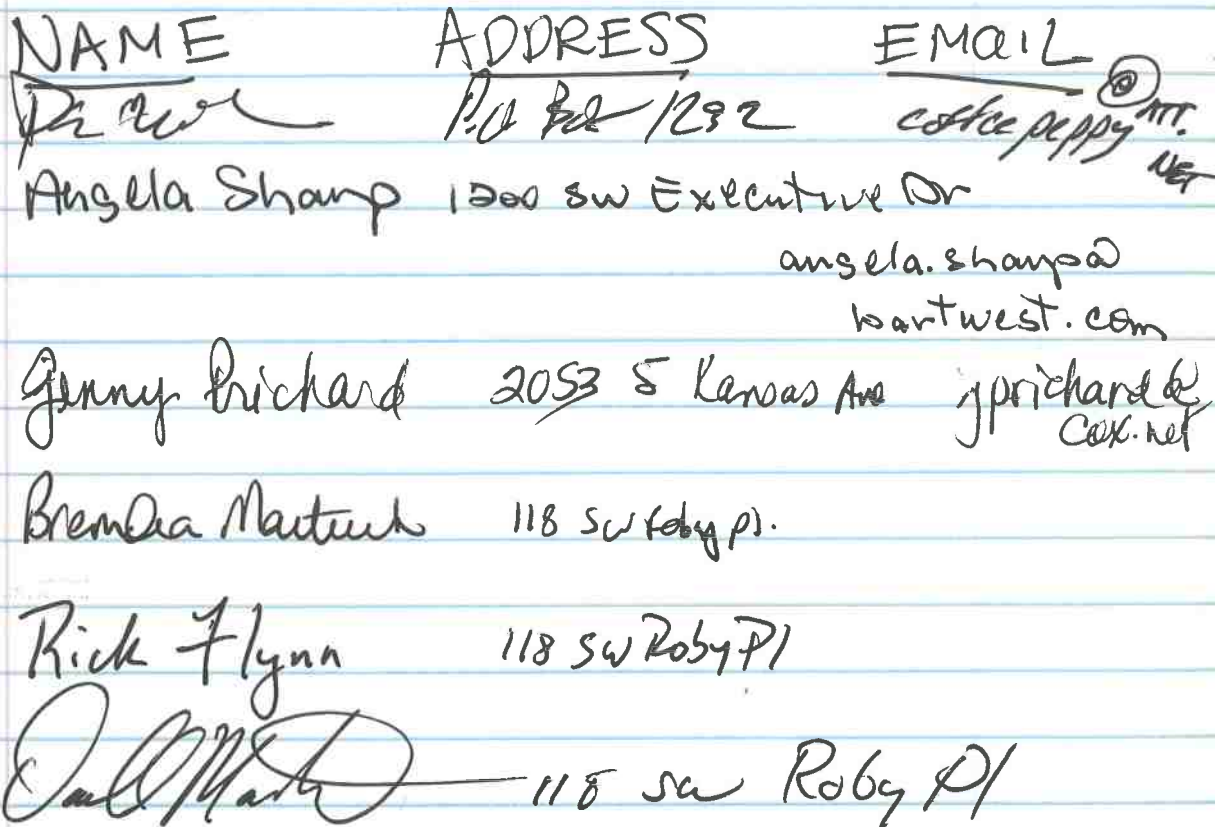 NAME ADDRESS EMAIL
P.O Box 1292 coffeepeppy@ATT.NET
Angela Sharp 1200 SW Executive Dr
angela.sharp@
bartwest.com
Ginny Prichard 2053 S Kansas Ave jprichard@
cox.net
Brenda 118 SW Roby Pl.
Rick Flynn 118 SW Roby Pl
118 SW Roby Pl